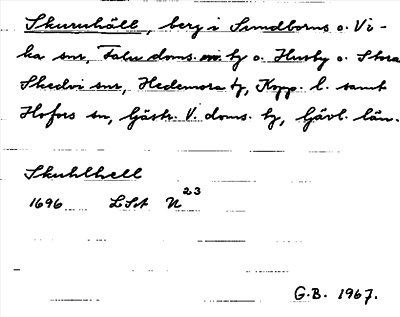 Skuruhäll, berg i Sundborns o. Vi-
ka snr, Falu doms. tg o. Husby o. Stora
Skedvi snr, Hedemora tg, Kopp. l. samt
Hofors sn, Gästr. V. doms. tg, Gävl. län.
Skuhlhell
1696 LSA N 23
G.B. 1967.